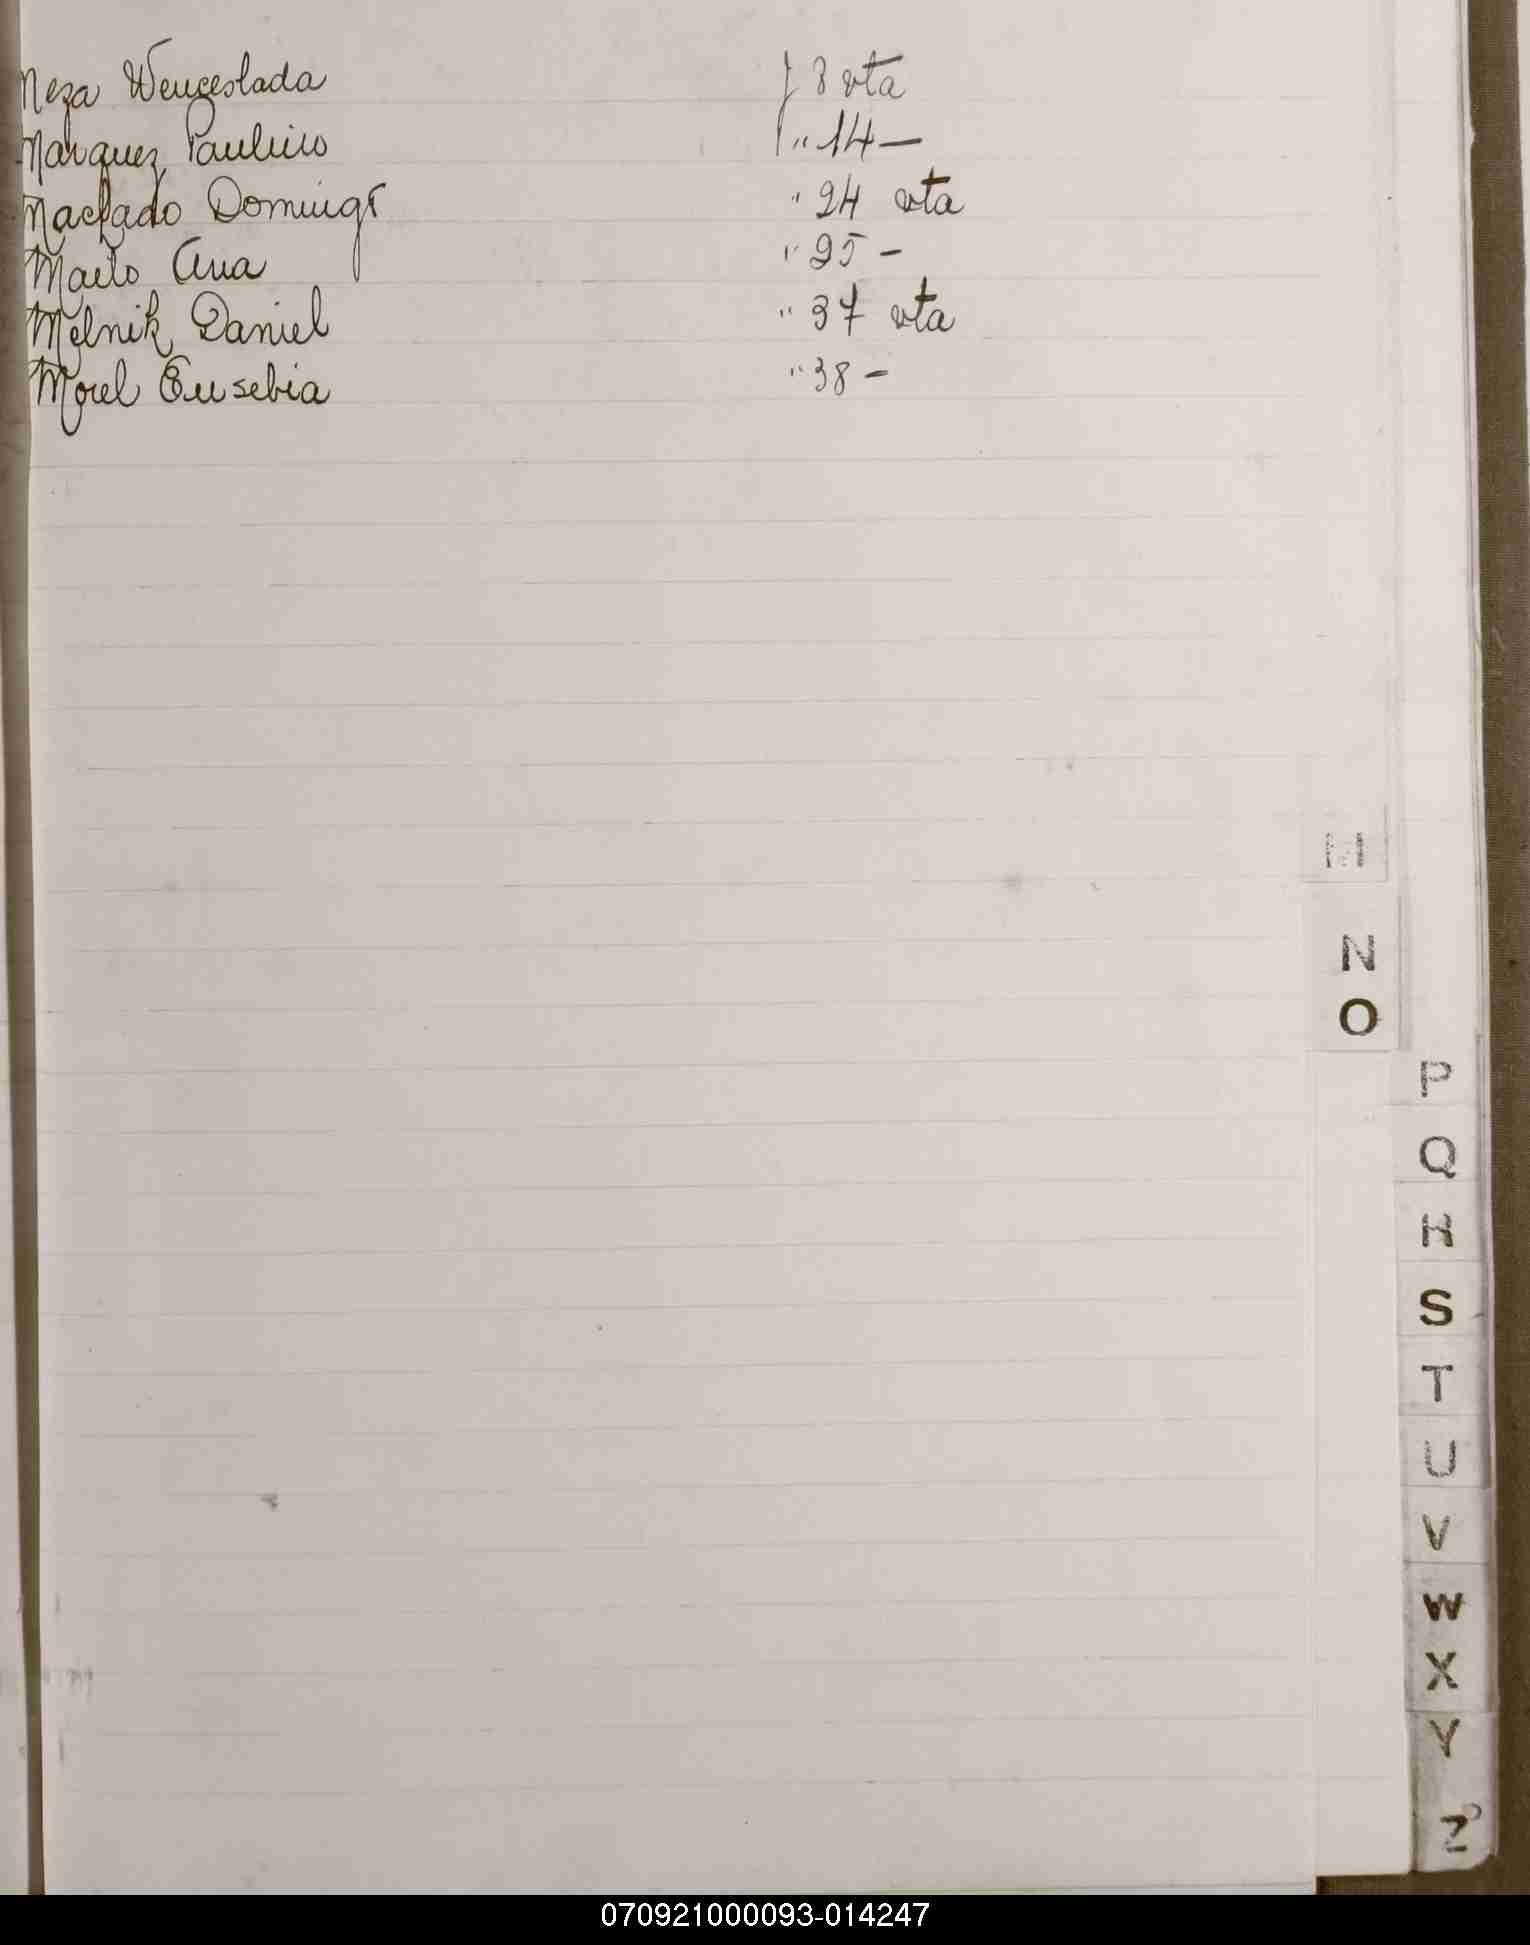 Meza Wenceslada f 8 vta
Marquez Paulino " 14 —
Machado Domingo " 24 vta
Ana " 25 —
Melnik Daniel " 37 vta
Morel Eusebia " 38 —
M
N
O
P
Q
R
S
T
U
V
W
X
Y
Z
070921000093-014247